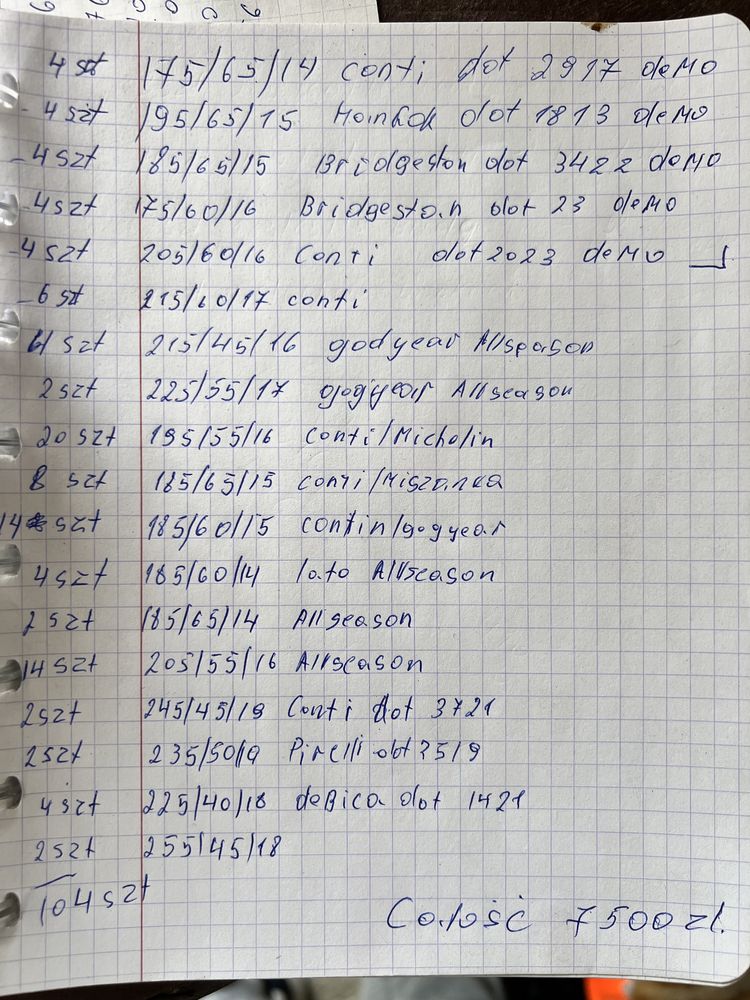 4 szt 175/65/14 conti dot 2917 deMO
- 4 szt 195/65/15 Hankok dot 1813 deMO
- 4 szt 185/65/15 Bridgeston dot 3422 deMO
- 4 szt 175/60/16 Bridgeston dot 23 deMO
- 4 szt 205/60/16 Conti dot 2023 deMO
- 6 szt 215/60/17 conti
4 szt 215/45/16 godyear Allseason
2 szt 225/55/17 gogyear Allseason
20 szt 195/55/16 Conti/Michelin
8 szt 185/65/15 conti/Miszanka
14 szt 185/60/15 contin/gogyear
4 szt 185/60/14 lato Allseason
2 szt 185/65/14 Allseason
14 szt 205/55/16 Allseason
2 szt 245/45/19 Conti dot 3721
2 szt 235/50/19 Pirelli dot 2519
4 szt 225/40/18 deBica dot 1421
2 szt 255/45/18
104 szt
Całość 7500 zł.